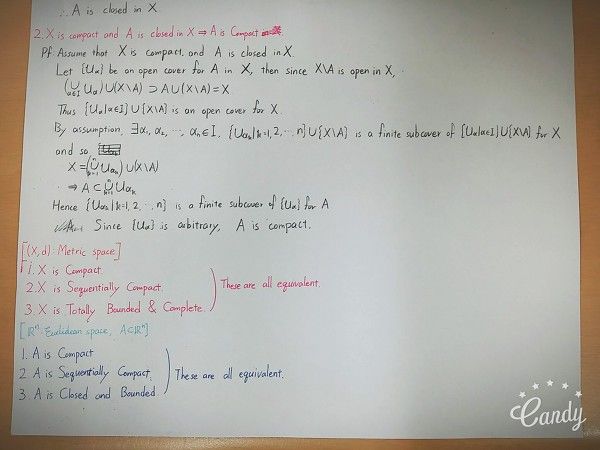 ∴ A is closed in X
2. X is compact and A is closed in X ⇒ A is Compact
Pf Assume that X is compact, and A is closed in X.
Let {Uα} be an open cover for A in X, then since X\A is open in X,
(∪α∈I Uα)∪(X\A) ⊃ A∪(X\A) = X
Thus {Uα|α∈I}∪{X\A} is an open cover for X.
By assumption, ∃α₁, α₂, ⋯, αₙ∈I, {Uαₖ|k=1, 2, ⋯, n}∪{X\A} is a finite subcover of {Uα|α∈I}∪{X\A} for X
and so
X = (ⁿ∪ₖ₌₁ Uαₖ)∪(X\A)
⇒ A ⊂ ⁿ∪ₖ₌₁ Uαₖ
Hence {Uαₖ|k=1, 2, ⋯, n} is a finite subcover of {Uα} for A
Since {Uα} is arbitrary, A is compact.
[(X, d) : Metric space]
1. X is Compact
2. X is Sequentially Compact.
These are all equivalent.
3. X is Totally Bounded & Complete.
[ℝⁿ: Euclidean space, A⊂ℝⁿ]
1. A is Compact
2. A is Sequentially Compact.
These are all equivalent.
3. A is Closed and Bounded.
Candy